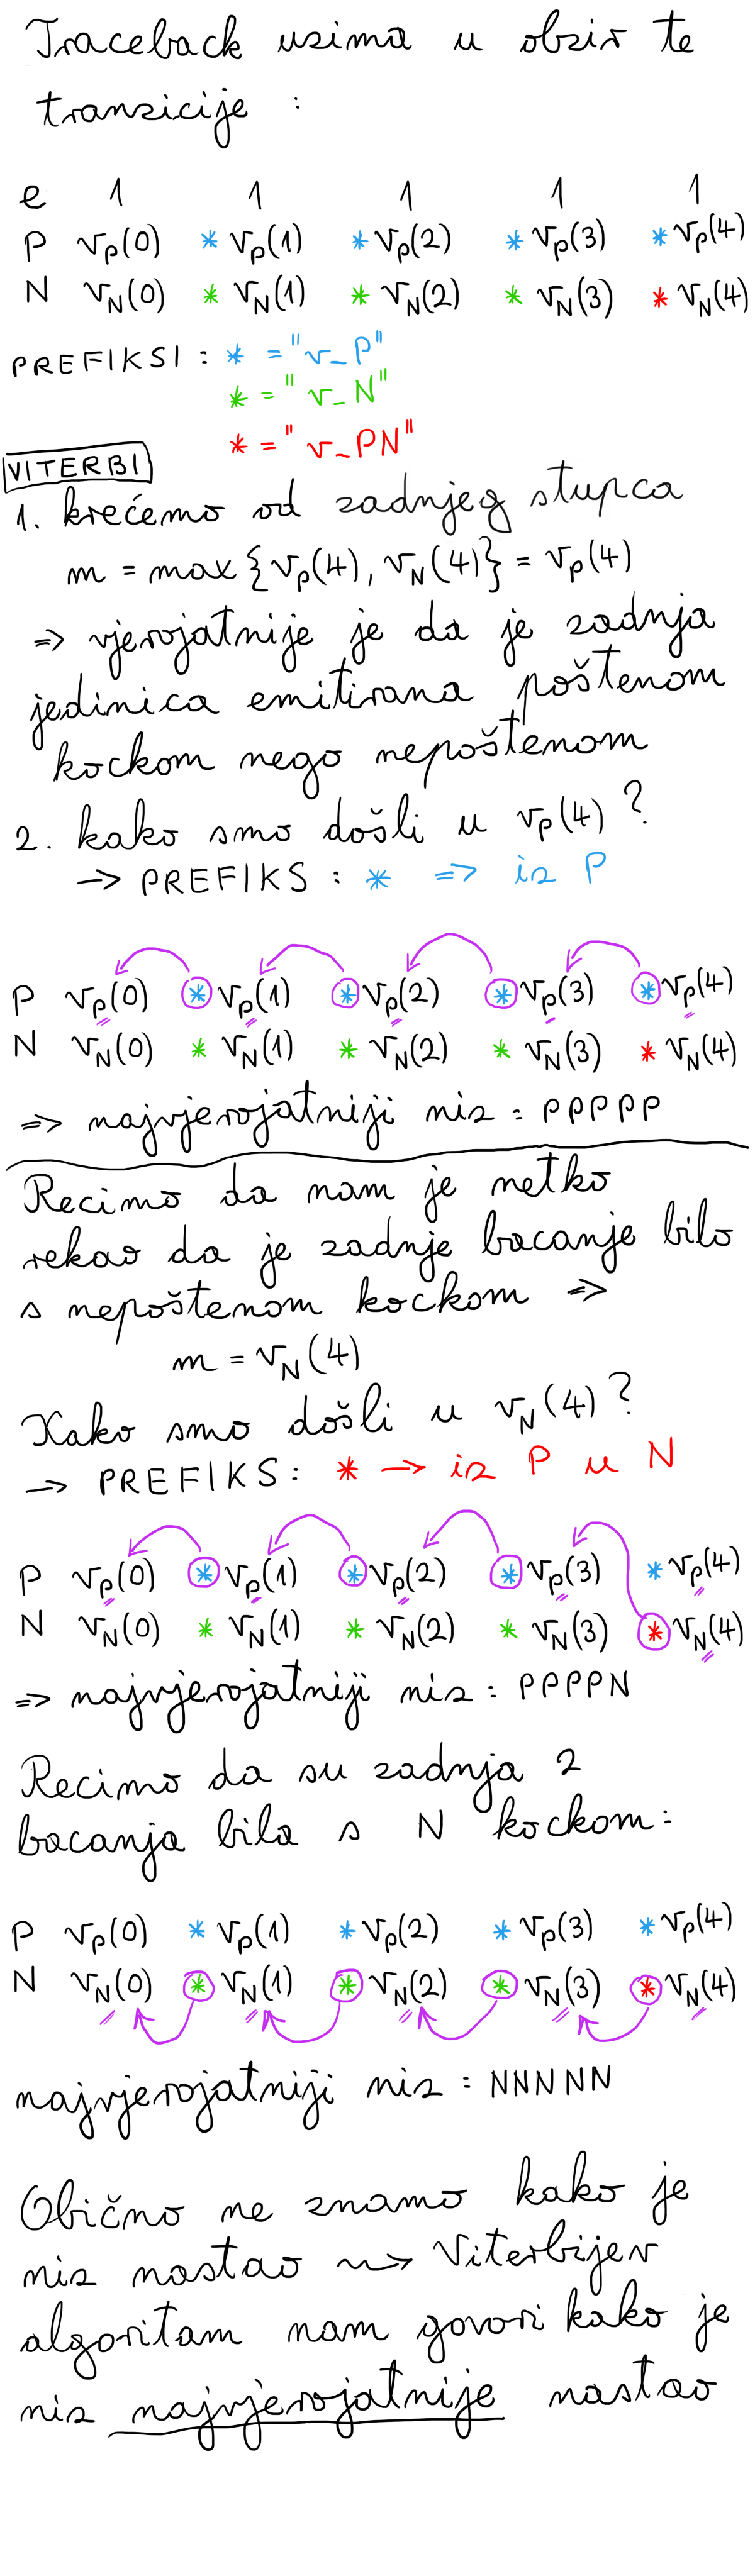 Traceback uzima u obzir te
tranzicije :
e 1 1 1 1 1
P v_P(0) * v_P(1) * v_P(2) * v_P(3) * v_P(4)
N v_N(0) * v_N(1) * v_N(2) * v_N(3) * v_N(4)
PREFIKSI : * = "v_P"
* = "v_N"
* = "v_PN"
VITERBI
1. krećemo od zadnjeg stupca
m = max {v_P(4), v_N(4)} = v_P(4)
⇒ vjerojatnije je da je zadnja
jedinica emitirana poštenom
kockom nego nepoštenom
2. kako smo došli u v_P(4) ?
→ PREFIKS : * ⇒ iz P
P v_P(0) * v_P(1) * v_P(2) * v_P(3) * v_P(4)
N v_N(0) * v_N(1) * v_N(2) * v_N(3) * v_N(4)
⇒ najvjerojatniji niz : PPPPP
Recimo da nam je netko
rekao da je zadnje bacanje bilo
s nepoštenom kockom ⇒
m = v_N(4)
Kako smo došli u v_N(4) ?
→ PREFIKS : * → iz P u N
P v_P(0) * v_P(1) * v_P(2) * v_P(3) * v_P(4)
N v_N(0) * v_N(1) * v_N(2) * v_N(3) * v_N(4)
⇒ najvjerojatniji niz : PPPPN
Recimo da su zadnja 2
bacanja bila s N kockom :
P v_P(0) * v_P(1) * v_P(2) * v_P(3) * v_P(4)
N v_N(0) * v_N(1) * v_N(2) * v_N(3) * v_N(4)
najvjerojatniji niz : NNNNN
Obično ne znamo kako je
niz nastao ⇝ Viterbijev
algoritam nam govori kako je
niz najvjerojatnije nastao